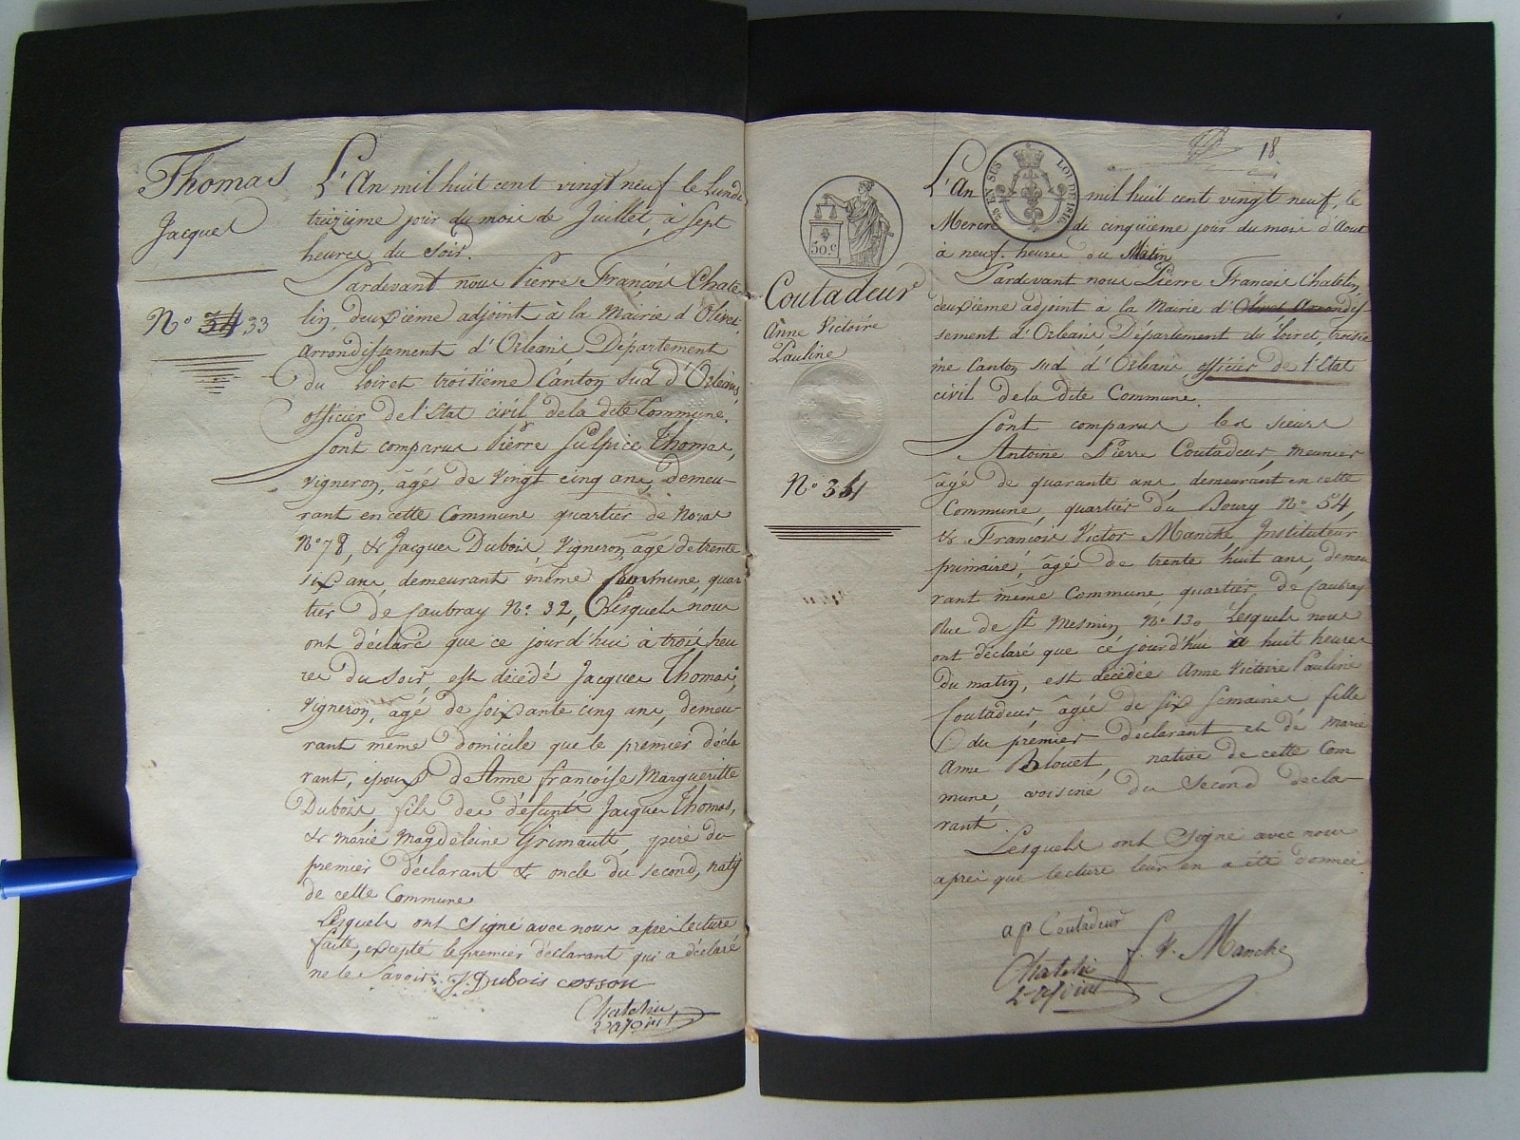 Thomas
Jacques
N° 34 33
L'An mil huit cent vingt neuf le Lundi
treizieme jour du mois de Juillet, à sept
heures du soir.
Pardevant nous Pierre François Chate
lin, deuxième adjoint à la Mairie d'Olivet
arrondissement d'Orleans Département
du Loiret troisième Canton sud d'Orleans,
officier de l'Etat civil de la dite Commune.
Sont comparus Pierre Sulpice Thomas,
vigneron, âgé de vingt cinq ans, demeu-
rant en cette Commune quartier de
N° 78, & Jacques Dubois Vigneron âgé de trente
six ans, demeurant même Commune, quar
tier de Caubray N° 32, Lesquels nous
ont déclaré que ce jourd'hui à trois heu
res du soir, est décédé Jacques Thomas,
Vigneron, âgé de soixante cinq ans, demeu-
rant même domicile que le premier décla
rant, epoux de Anne françoise Margueritte
Dubois, fils des défunts Jacques Thomas,
& marie Magdeleine Grimault, père du
premier déclarant & oncle du second, natif
de cette Commune
Lesquels ont signé avec nous apres lecture
faite, excepté le premier déclarant qui a déclaré
ne le savoir. J. Dubois cosson
Chatelin
2e adjoint
18
50 c
25 EN SUS LOI DE 1816
Coutadeur
Anne Victoire
Pauline
N° 34
L'An mil huit cent vingt neuf, le
Mercredi cinquième jour du mois d'Aout
à neuf heures du Matin
Pardevant nous Pierre François Chatelin,
deuxieme adjoint à la Mairie d'Olivet Arrondis-
sement d'Orleans Département du loiret, troisiè
me Canton sud d'Orleans officier de l'Etat
civil de la dite Commune.
Sont comparus les sieurs
Antoine Pierre Coutadeur, meunier
âgé de quarante ans, demeurant en cette
Commune, quartier du Bourg N° 54,
& François Victor Manche Instituteur
primaire, âgé de trente huit ans, demeu
rant même Commune quartier de Caubray
Rue de St Mesmin N° 130 Lesquels nous
ont déclaré que ce jourd'hui à huit heures
du matin, est décédée Anne Victoire Pauline
Coutadeur, âgée de six semaines fille
du premier declarant et de marie
Anne Blouet, native de cette Com
mune, voisine du second decla-
rant
Lesquels ont signé avec nous
aprés que lecture leur en a été donnée
a p Coutadeur
f. V. Manche
Chatelin
2e adjoint